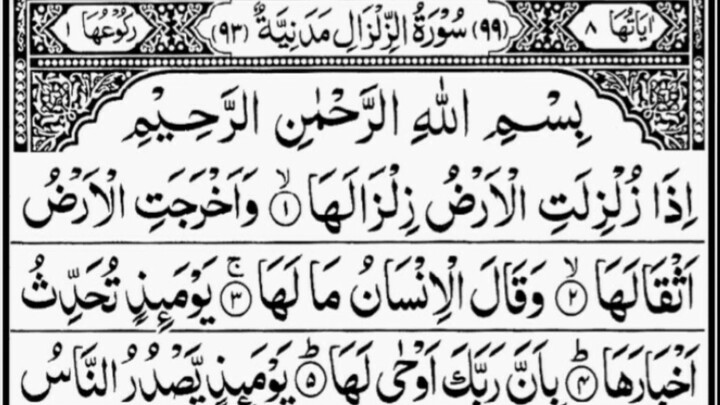 اٰيَاتُهَا ٨ (٩٩) سُوْرَةُ الزِّلْزَالِ مَدَنِيَّةٌ (٩٣) رُكُوْعُهَا ١
بِسْمِ اللهِ الرَّحْمٰنِ الرَّحِيْمِ
اِذَا زُلْزِلَتِ الْاَرْضُ زِلْزَالَهَا ۙ﴿١﴾ وَاَخْرَجَتِ الْاَرْضُ
اَثْقَالَهَا ۙ﴿٢﴾ وَقَالَ الْاِنْسَانُ مَا لَهَا ۚ﴿٣﴾ يَوْمَئِذٍ تُحَدِّثُ
اَخْبَارَهَا ؕ﴿٤﴾ بِاَنَّ رَبَّكَ اَوْحٰى لَهَا ؕ﴿٥﴾ يَوْمَئِذٍ يَّصْدُرُ النَّاسُ